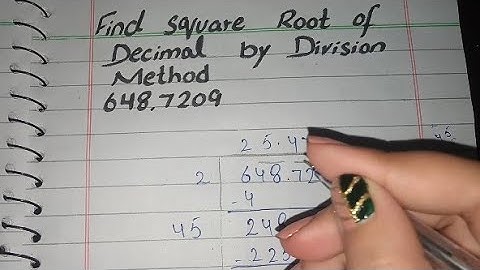 Find square Root of
Decimal by Division
Method
648.7209
45
25.4
2 648.72
-4
45 248
-225